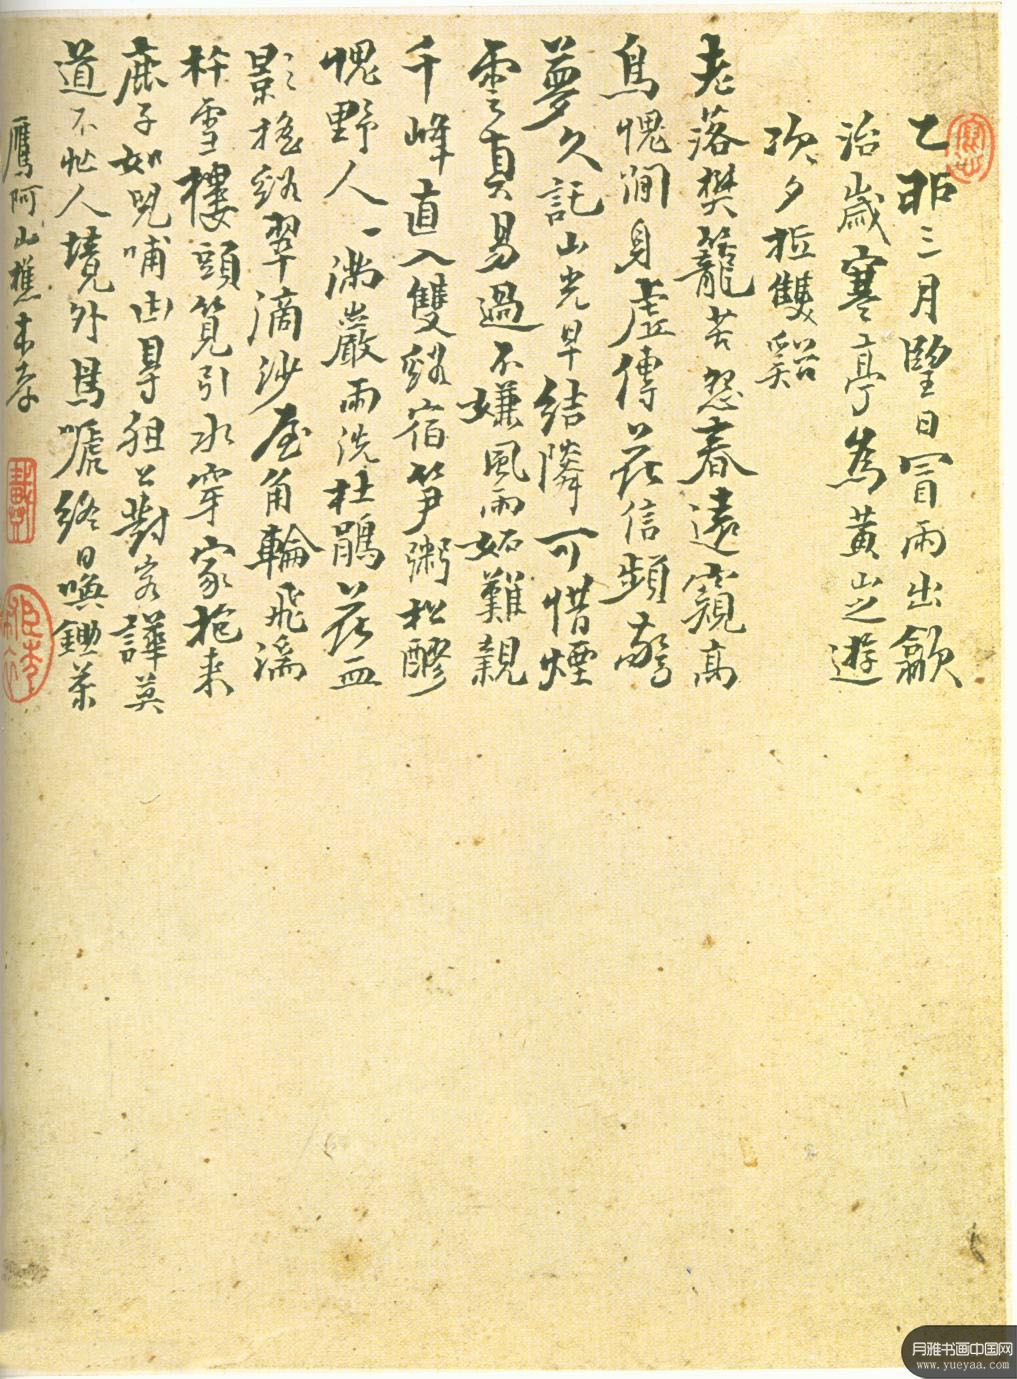 乙丑三月朢日冒雨出歙
治歲寒亭為黃山之遊
次夕抵雙谿
老落樊籠苦怨春遠窺高
鳥愧澗身虛傳花信頻驚
夢久託山光早結隣可惜煙
雲真易過不嫌風雨妬難親
千峰直入雙谿宿筍粥松醪
愧野人一滴巖雨洗杜鵑花血
影搖谿翠滴沙屋角輪飛湍
杵雪樓頭筧引水穿家抱来
鹿子如兒哺出尊俎公對客譁莫
道不妨人境外鳥嘑終日喚鋤茶
鷹阿山樵
月雅书画中国网
www.yueyaa.com